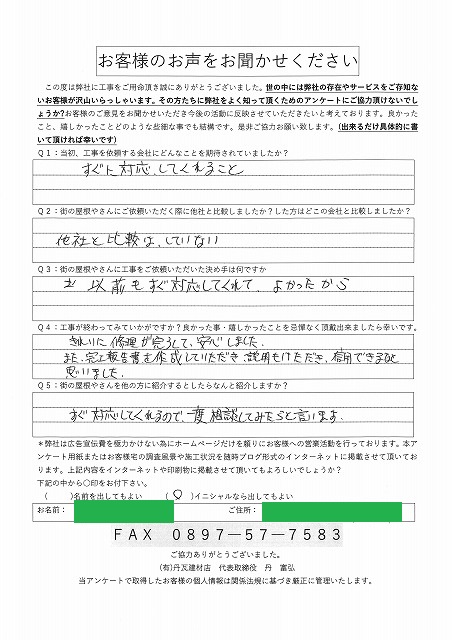 お客様のお声をお聞かせください
この度は弊社に工事をご用命頂き誠にありがとうございました。世の中には弊社の存在やサービスをご存知な
いお客様が沢山いらっしゃいます。その方たちに弊社をよく知って頂くためのアンケートにご協力頂けないでし
ょうか?お客様のご意見をお聞かせいただき今後の活動に反映させていただきたいと考えております。良かった
こと、嬉しかったことどのような些細な事でも結構です。是非ご協力お願い致します。(出来るだけ具体的に書
いて頂ければ幸いです)
Q1：当初、工事を依頼する会社にどんなことを期待されていましたか?
すぐに対応してくれること
Q2：街の屋根やさんにご依頼いただく際に他社と比較しましたか?した方はどこの会社と比較しましたか?
他社と比較は、していない
Q3：街の屋根やさんに工事をご依頼いただいた決め手は何ですか
以前もすぐ対応してくれて、よかったから
Q4：工事が終わってみていかがですか?良かった事・嬉しかったことを忌憚なく頂戴出来ましたら幸いです。
きれいに修理が完了して、安心しました。
また、完工報告書を作成していただき、説明もいただき、信用できると
思いました。
Q5：街の屋根やさんを他の方に紹介するとしたらなんと紹介しますか?
すぐ対応してくれるので、一度相談してみたらと言います。
＊弊社は広告宣伝費を極力かけない為にホームページだけを頼りにお客様への営業活動を行っております。本ア
ンケート用紙またはお客様宅の調査風景や施工状況を随時ブログ形式のインターネットに掲載させて頂いてお
ります。上記内容をインターネットや印刷物に掲載させて頂いてもよろしいでしょうか?
下記の中から〇印をお付下さい。
(　　)名前を出してもよい　　(〇)イニシャルなら出してもよい
お名前：　　ご住所：
FAX 0897－57－7583
ご協力ありがとうございました。
(有)丹瓦建材店　代表取締役　丹　富弘
当アンケートで取得したお客様の個人情報は関係法規に基づき厳正に管理いたします。